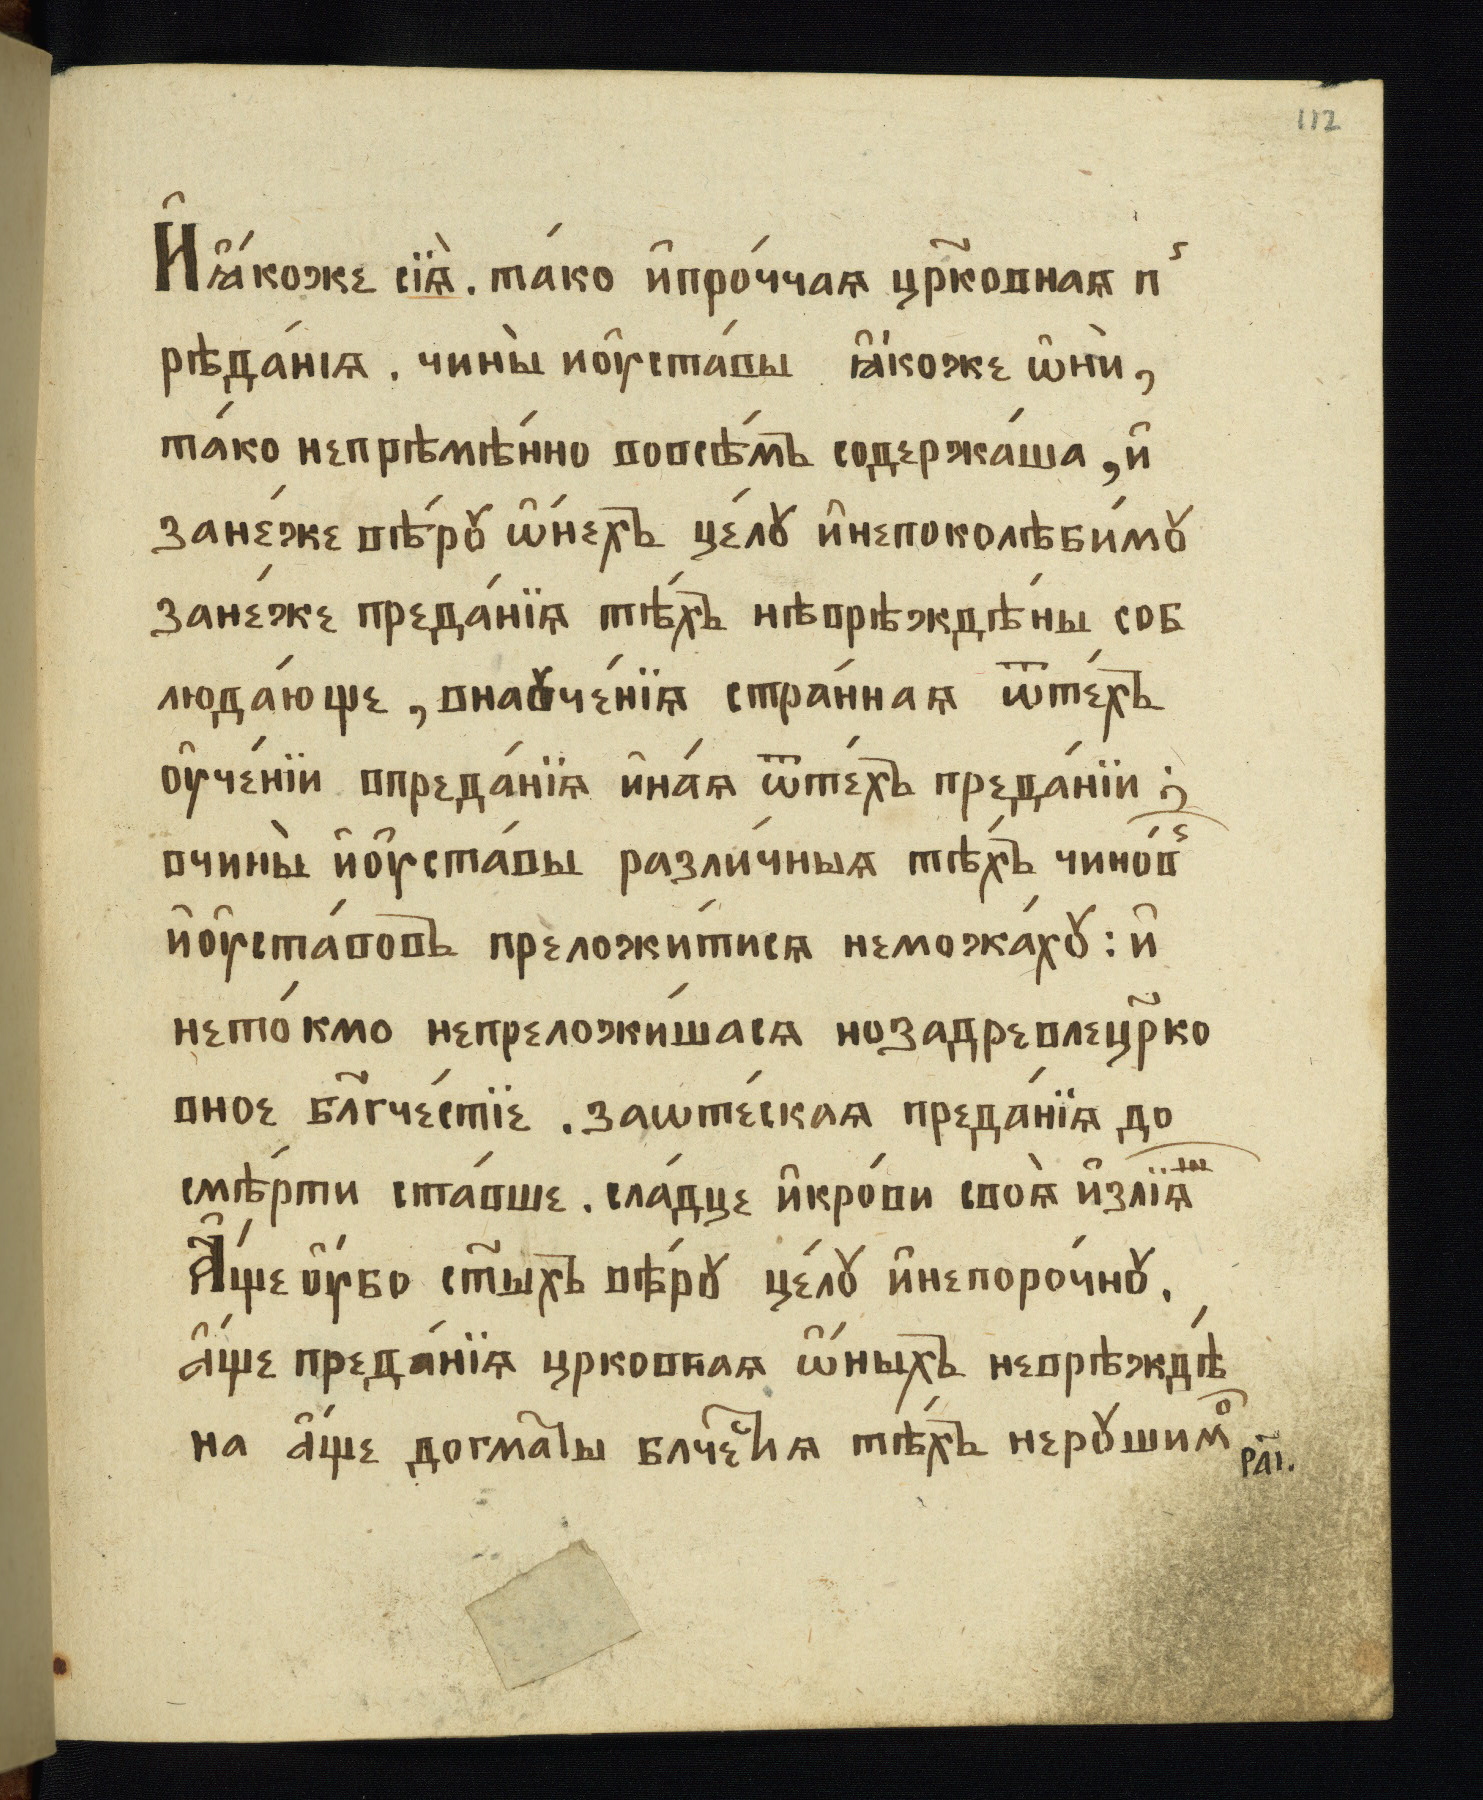 112
И҆ ꙗ҆́коже сїѧ̀. та́ко и҆про́ччаѧ цр҃ковнаѧ пѕ
рѣда́нїѧ. чины̀ иᲂу҆ста́вы ꙗ҆́коже ѡ҆нѝ,
та́ко непрѣмѣ́нно вовсѣ́мъ содержа́ша, и҆
зане́же вѣ́рꙋ ѡ҆́нехъ це́лꙋ и҆непоколѣби́мꙋ
зане́же преда́нїѧ тѣ́хъ нѣврѣждѣ́ны соб
люда́юще, внаꙋче́нїѧ стра́ннаѧ ѿте́хъ
ᲂу҆че́нїи впреда́нїѧ и҆на́ѧ ѿте́хъ преда́нїи ;
вчины̀ и҆ᲂу҆ста́вы разли́чныѧ тѣ́хъ чино́в
и҆ᲂу҆ста́вовъ преложи́тисѧ неможа́хꙋ: и҆
нето́кмо непреложи́шасѧ нозадревлецр҃ко
вное бл҃гче́стїе. заѡте́скаѧ преда́нїѧ до
смѣ́рти ста́вше. сла́дце и҆кро́ви своѧ̀ и҆злїѧⷮ
А҆́ще ᲂу҆бо ст҃ыхъ вѣ́рꙋ це́лꙋ и҆непоро́чнꙋ.
а҆́ще преда́нїѧ црковнаѧ ѡ҆́ныхъ неврѣждѣ́
на а҆́ще догма҃ты блчⷭ҇тиѧ тѣ́хъ нерꙋшимⷪ
ра҃і.